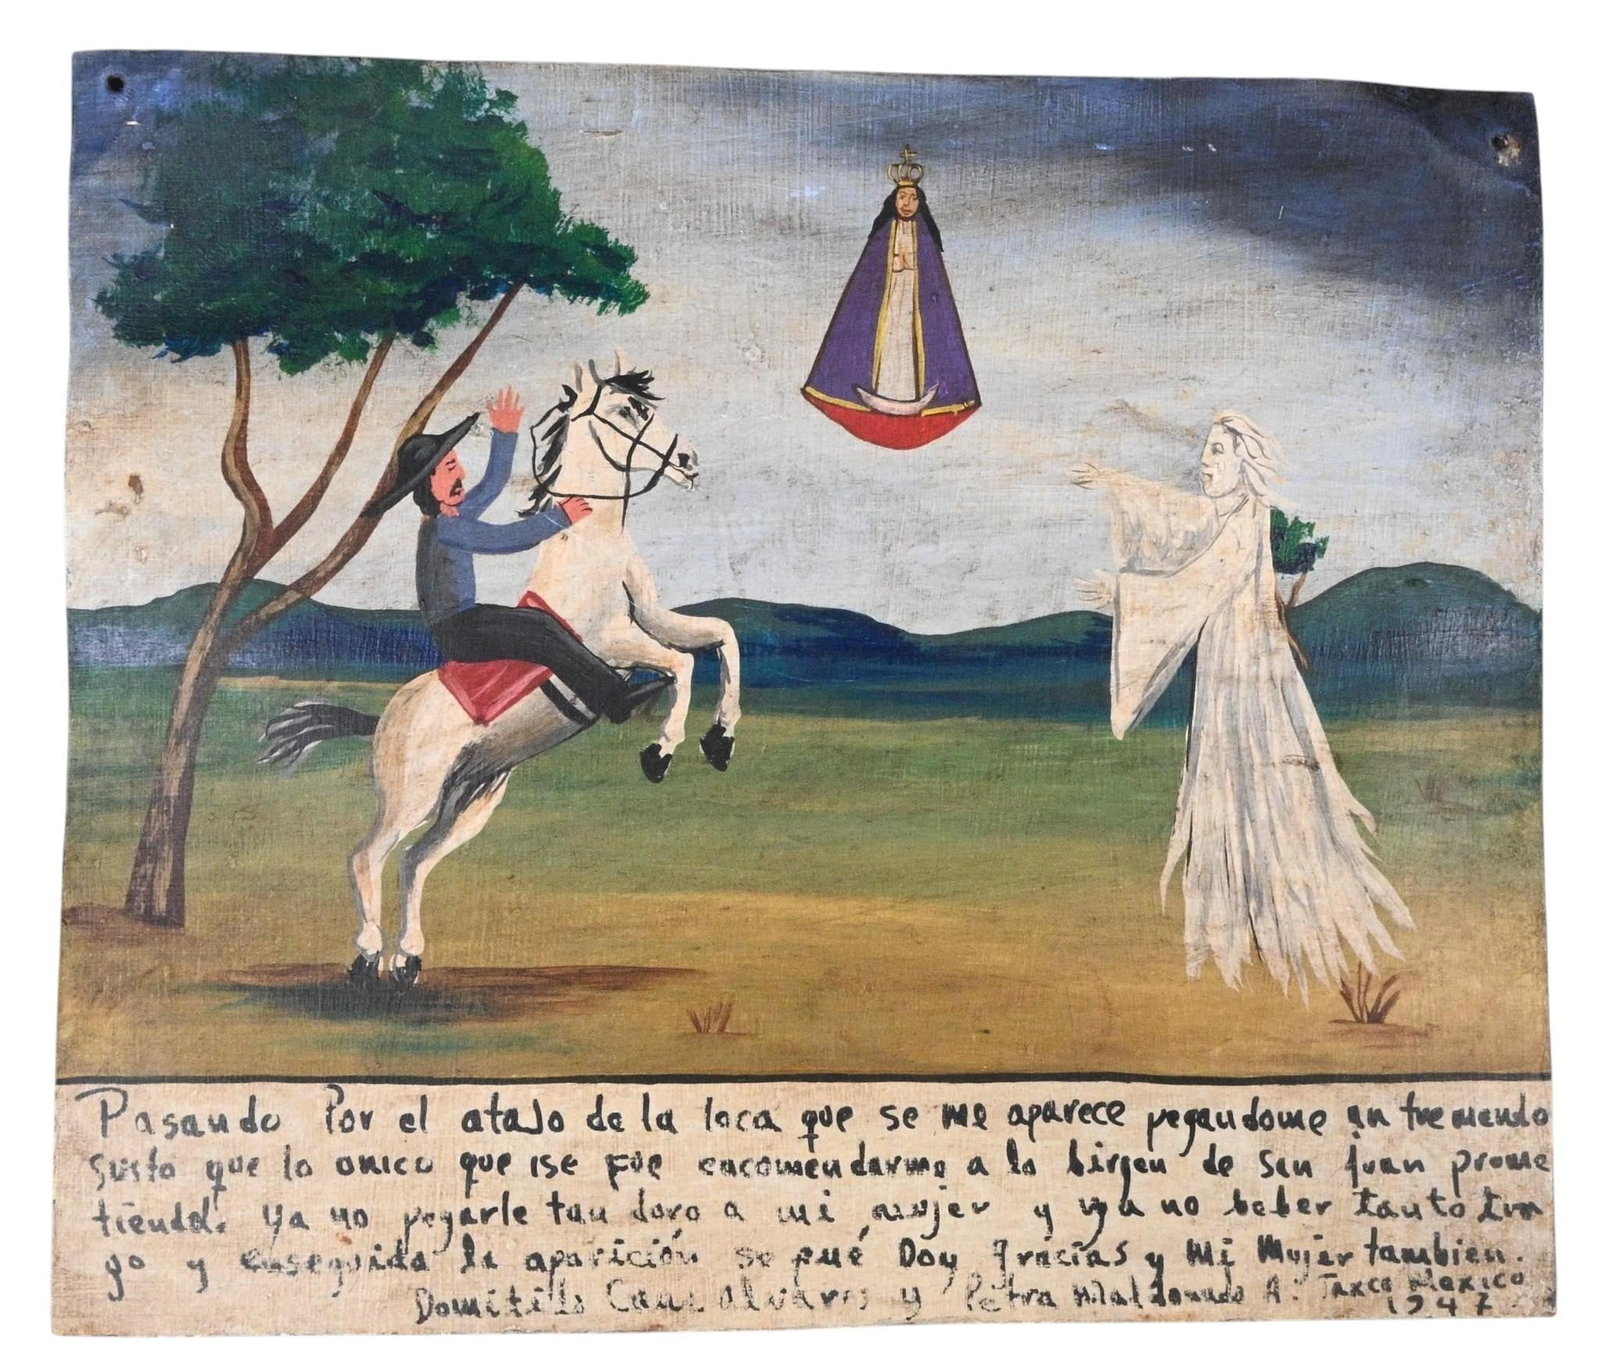 Pasando Por el atajo de la loca que se me aparece pegandome un tremendo
susto que lo onico que ise fue encomendarme a la birjen de san juan prome
tiendol. ya no pegarle tan doro a mi mujer y ya no beber tanto tin
go y enseguida la aparición se fué Doy gracias y Mi Mujer tambien.
Domitilo alvares y Petra Maldonado A. Taxco Mexico
1947